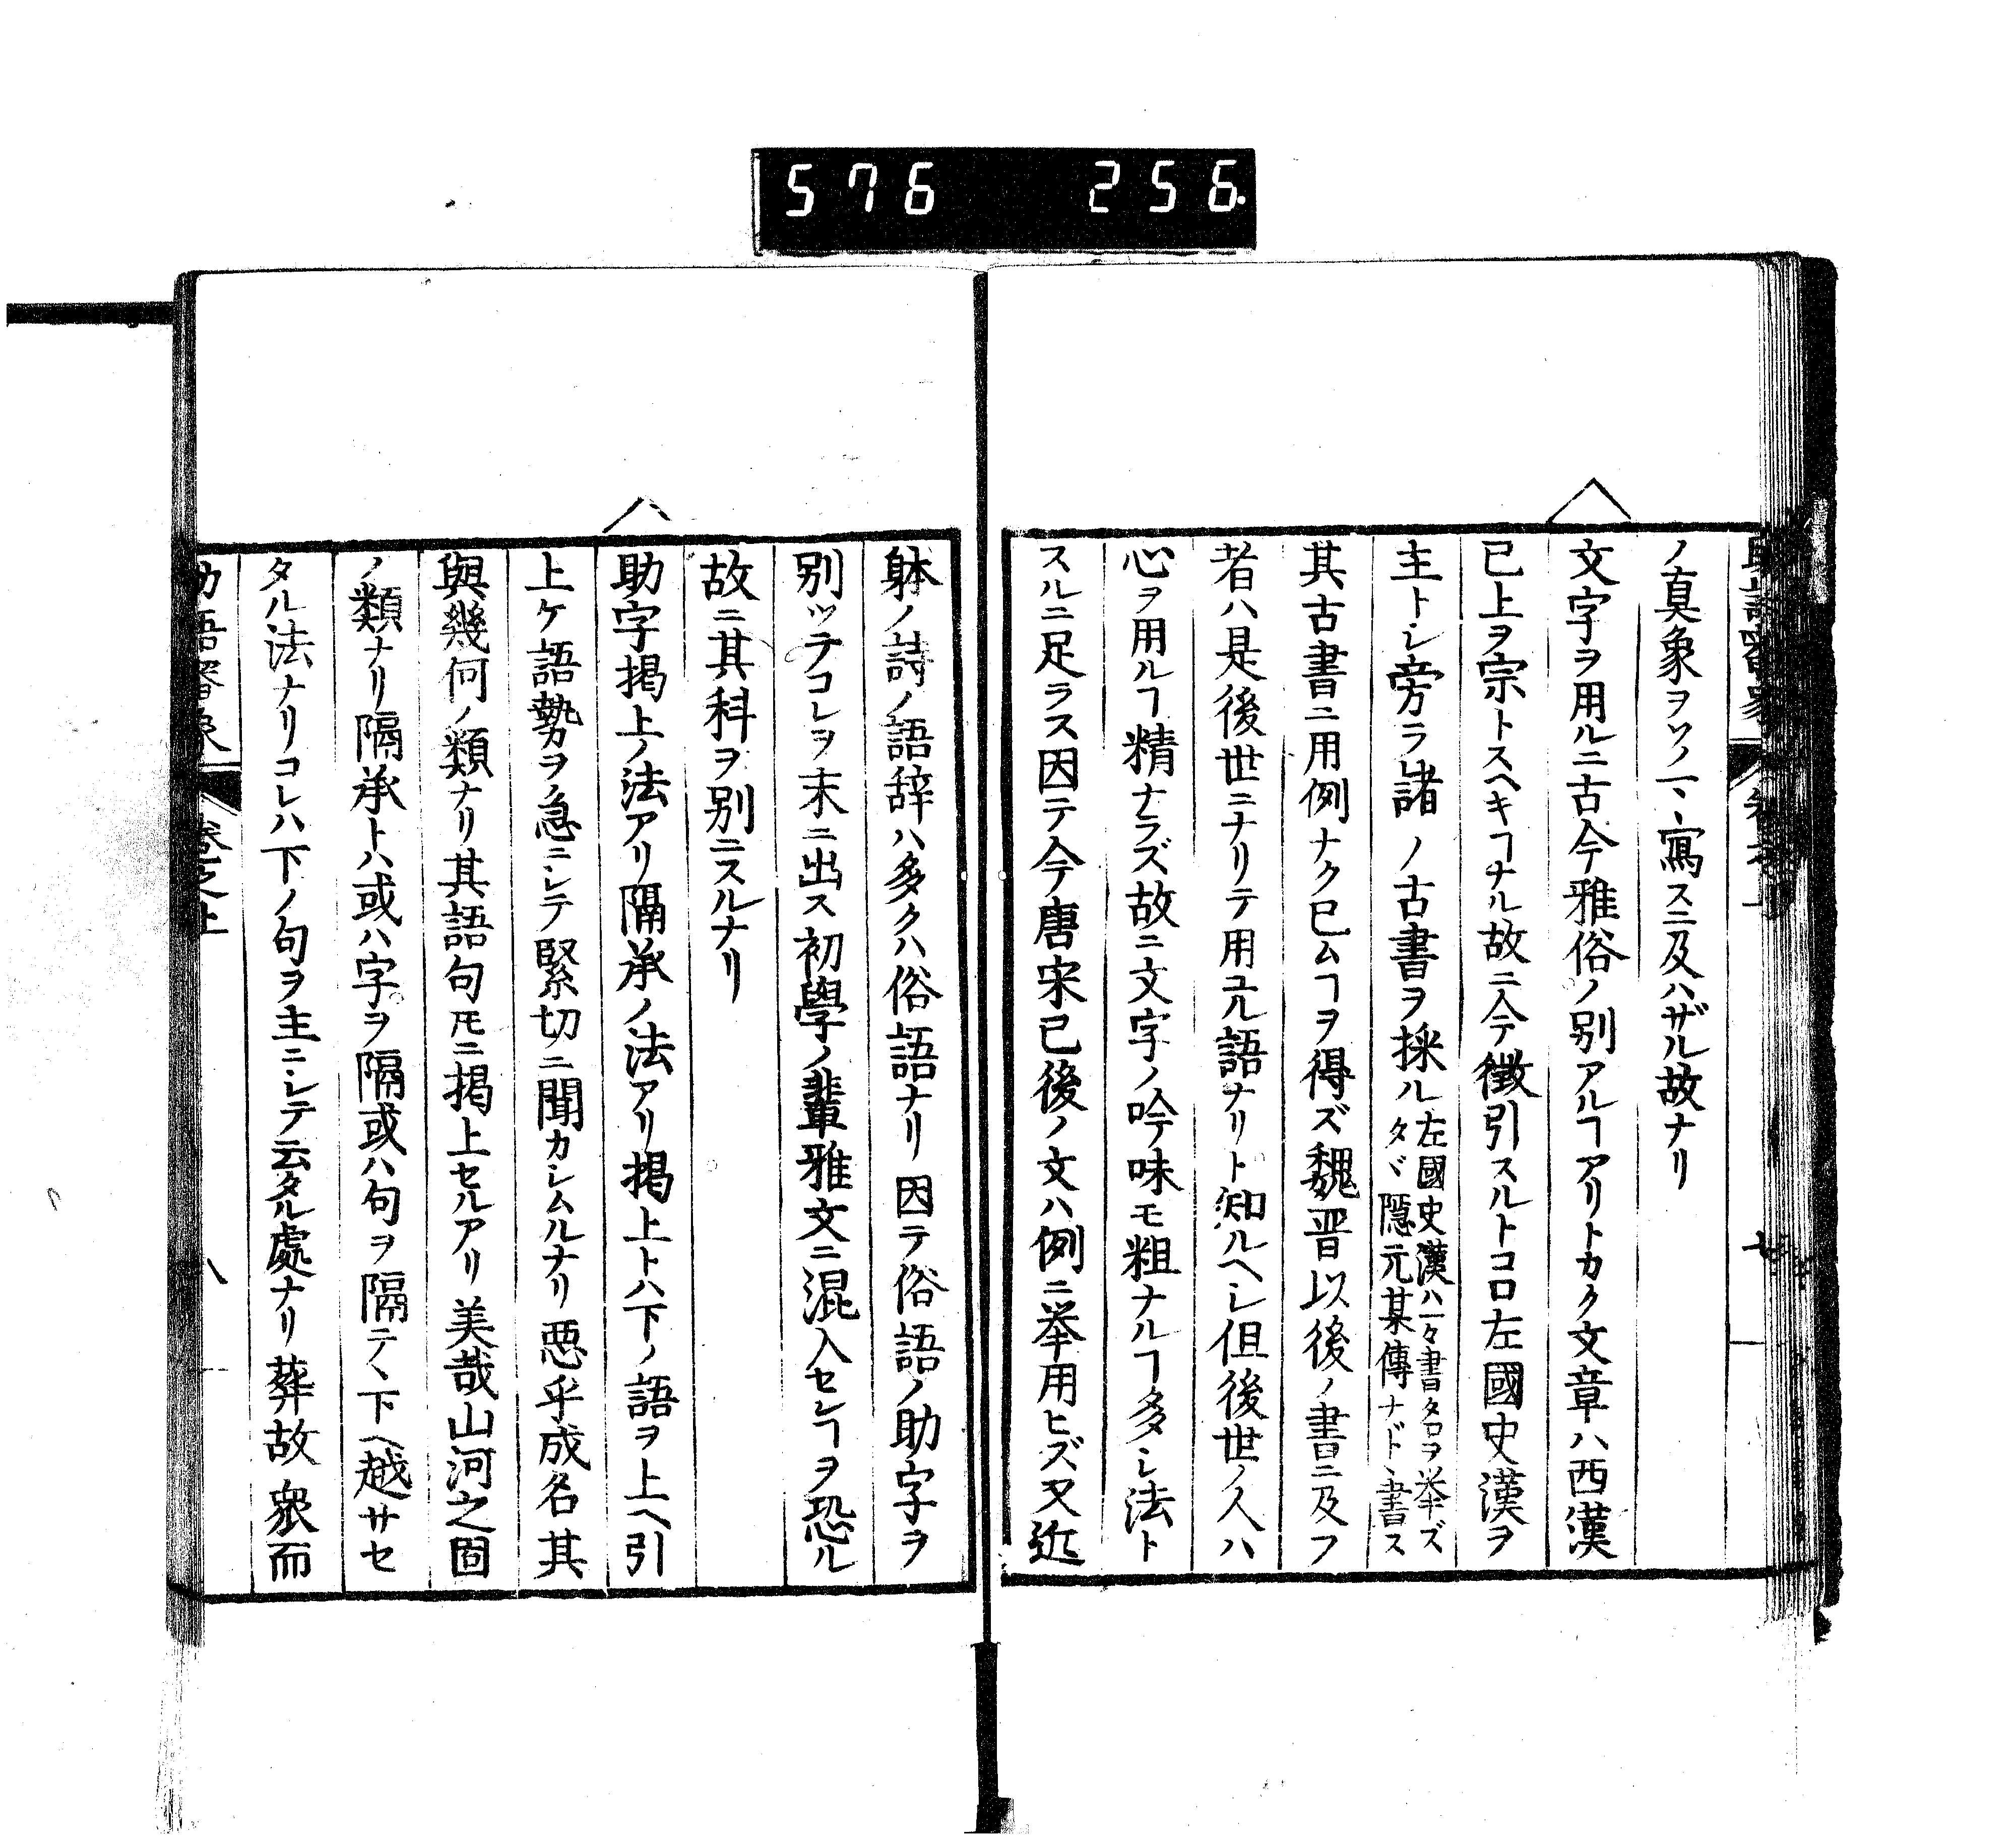 576 256
ノ真象ヲソノ一〻寫スニ及ハザル故ナリ
文字ヲ用ルニ古今雅俗ノ別アルヿアリトカク文章ハ西漢
已上ヲ宗トスヘキヿナル故ニ今徴引スルトコロ左國史漢ヲ
主トシ旁ラ諸ノ古書ヲ採ル
左國史漢ハ一々書タ名ヲ挙ズ
タヾ隱元某傳ナド〻書ス
其古書ニ用例ナク已ムヿヲ得ズ魏晋以後ノ書ニ及フ
者ハ是後世ニナリテ用ユル語ナリト知ルヘシ但後世ノ人ハ
心ヲ用ルヿ精ナラズ故ニ文字ノ吟味モ粗ナルヿ多シ法ト
スルニ足ラス因テ今唐宋已後ノ文ハ例ニ挙用ヒズ又近
躰ノ詩ノ語辞ハ多クハ俗語ナリ因テ俗語ノ助字ヲ
別ッテコレヲ末ニ出ス初學ノ輩雅文ニ混入セレヿヲ恐ル
故ニ其科ヲ別ニスルナリ
助字掲上ノ法アリ隔承ノ法アリ掲上トハ下ノ語ヲ上ヘ引
上ケ語勢ヲ急ニシテ緊切ニ聞カシムルナリ惡乎成名其
與幾何ノ類ナリ其語句𪜈ニ掲上セルアリ美哉山河之固
ノ類ナリ隔承トハ或ハ字ヲ隔或ハ句ヲ隔テ〻下ヘ越サセ
タル法ナリコレハ下ノ句ヲ主ニシテ云タル處ナリ葬故衆而
助語審象
卷之上
八